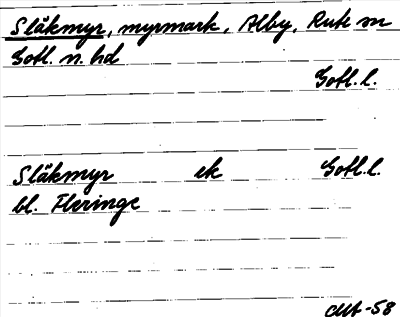 Släkmyr, myrmark, Alby, Rute sn
Gotl. n. hd
Gotl. l.
Släkmyr ek Gotl. l.
bl. Fleringe
-58